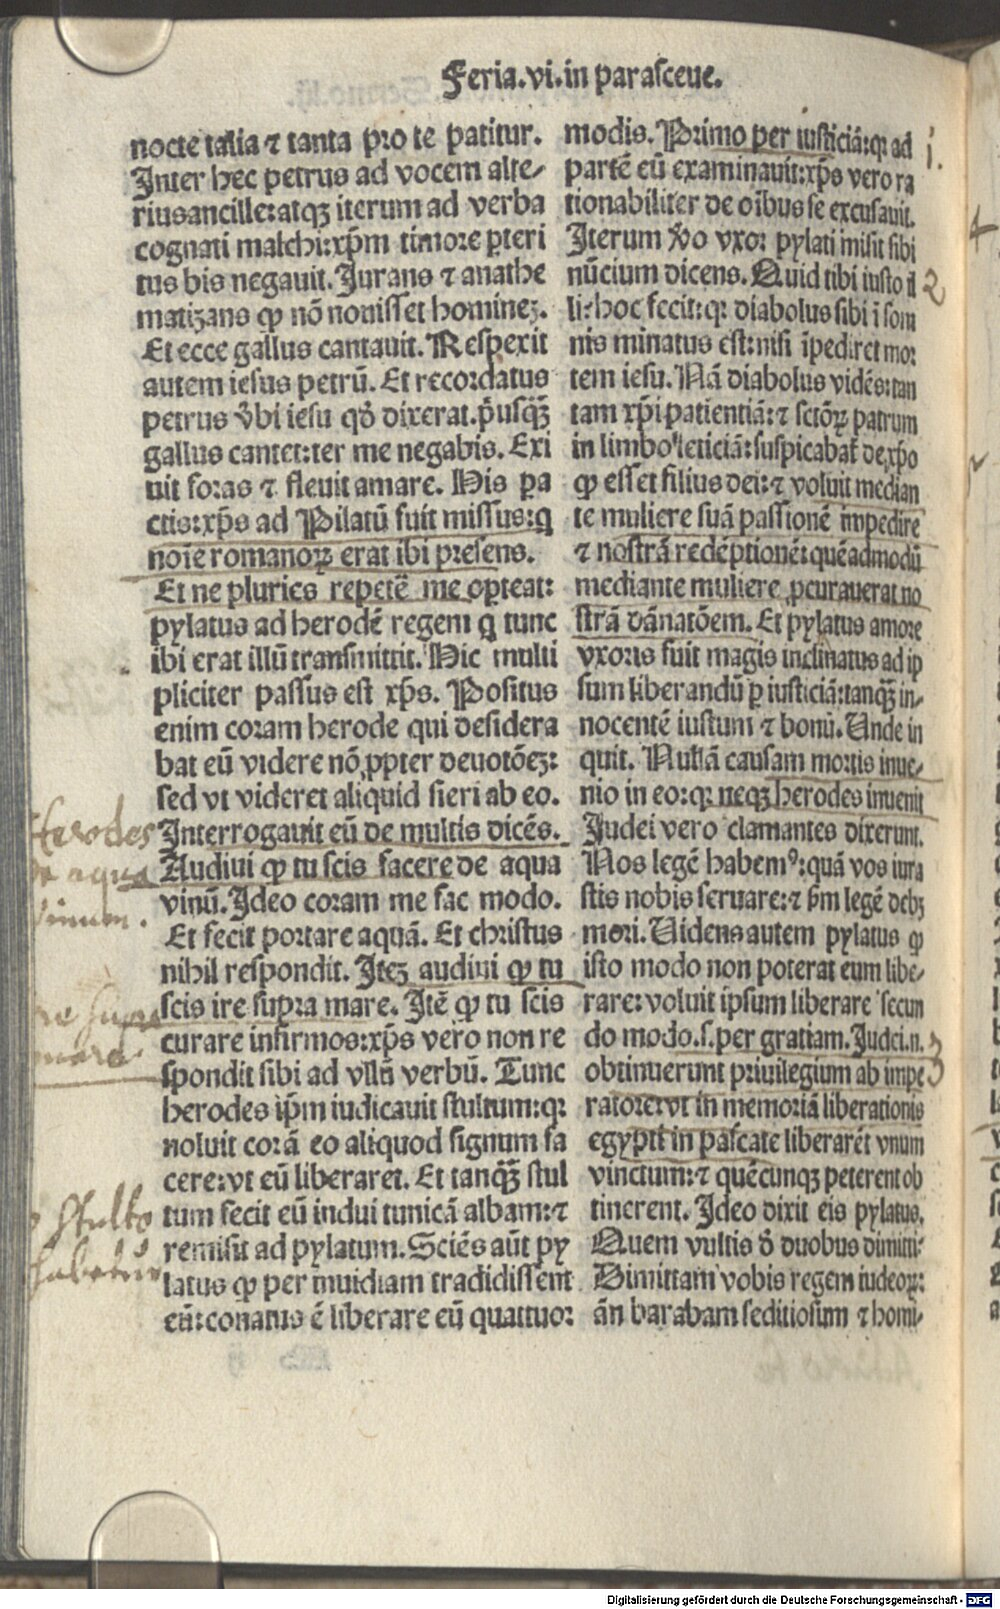 Feria.vi.in parasceue.
nocte talia ⁊ tanta pro te patitur.
Inter hec petrus ad vocem alte⸗
rius ancille:atqꝫ iterum ad verba
cognati malchi:xp̄m timore ꝑteri
tus bis negauit. Iurans ⁊ anathe
matizans ꝙ nō nouisset homineꝫ.
Et ecce gallus cantauit. Respexit
autem iesus petrū. Et recordatus
petrus v̄bi iesu qd̓ dixerat.p̄usqꝫ̄
gallus cantet:ter me negabis. Exi
uit foras ⁊ fleuit amare. His pa
ctis:xp̄s ad Pilatū fuit missus:q̄
noīe romanoꝝ erat ibi presens.
Et ne pluries repetē me oꝑteat:
pylatus ad herodē regem q̄ tunc
ibi erat illū transmittit. Hic multi
pliciter passus est xp̄s. Positus
enim coram herode qui desidera
bat eū videre nō ꝓpter deuotōeꝫ:
sed vt videret aliquid fieri ab eo.
Interrogauit eū de multis dicēs.
Audiui ꝙ tu scis facere de aqua
vinū. Ideo coram me fac modo.
Et fecit portare aquā. Et christus
nihil respondit. Iteꝫ audiui ꝙ tu
scis ire supra mare. Itē ꝙ tu scis
curare infirmos:xp̄s vero non re
spondit sibi ad vllū verbū. Tunc
herodes ip̄m iudicauit stultum:qꝛ
noluit corā eo aliquod signum fa
cere:vt eū liberaret. Et tanqꝫ̄ stul
tum fecit eū indui tunicā albam:⁊
remisit ad pylatum. Sciēs aūt py
latus ꝙ per inuidiam tradidissent
eū:conatus ē liberare eū quattuor
modis. Primo per iusticiā:qꝛ ad
partē eū examinauit:xp̄s vero ra
tionabiliter de oībus se excusauit.
Iterum v̄o vxor pylati misit sibi
nūcium dicens. Quid tibi iusto il
li:hoc fecit:qꝛ diabolus sibi ī som
nis minatus est:nisi īpediret mor
tem iesu. Nā diabolus vidēs:tan
tam xp̄i patientiā:⁊ sctōꝝ patrum
in limbo leticiā:suspicabat̄ de xp̄o
ꝙ esset filius dei:⁊ voluit median
te muliere suā passionē impedire
⁊ nostrā redēptionē:quēadmodū
mediante muliere ꝓcurauerat no
strā dānatōem. Et pylatus amore
vxoris fuit magis inclinatus ad ip
sum liberandū ꝑ iusticiā:tanqꝫ̄ in⸗
nocentē iustum ⁊ bonū. Unde in
quit. Nullā causam mortis inue⸗
nio in eo:qꝛ neqꝫ herodes inuenit
Iudei vero clamantes dixerunt.
Nos legē habemꝰ:quā vos iura
stis nobis seruare:⁊ s̄m legē debꝫ
mori. Uidens autem pylatus ꝙ
isto modo non poterat eum libe⸗
rare:voluit ipsum liberare secun
do modo.s.per gratiam. Iudei.n.
obtinuerunt priuilegium ab impe
ratore:vt in memoriā liberationis
egypti in pascate liberarēt vnum
vinctum:⁊ quēcunqꝫ peterent ob
tinerent. Ideo dixit eis pylatus.
Quem vultis d̓ duobus dimitti:
Dimittam vobis regem iudeoꝝ:
an barabam seditiosum ⁊ homi⸗
Herodes
de aqua
vinum.
ire supra
mare.
stulto
habetur
1.
2
3
Digitalisierung gefördert durch die Deutsche Forschungsgemeinschaft - DFG